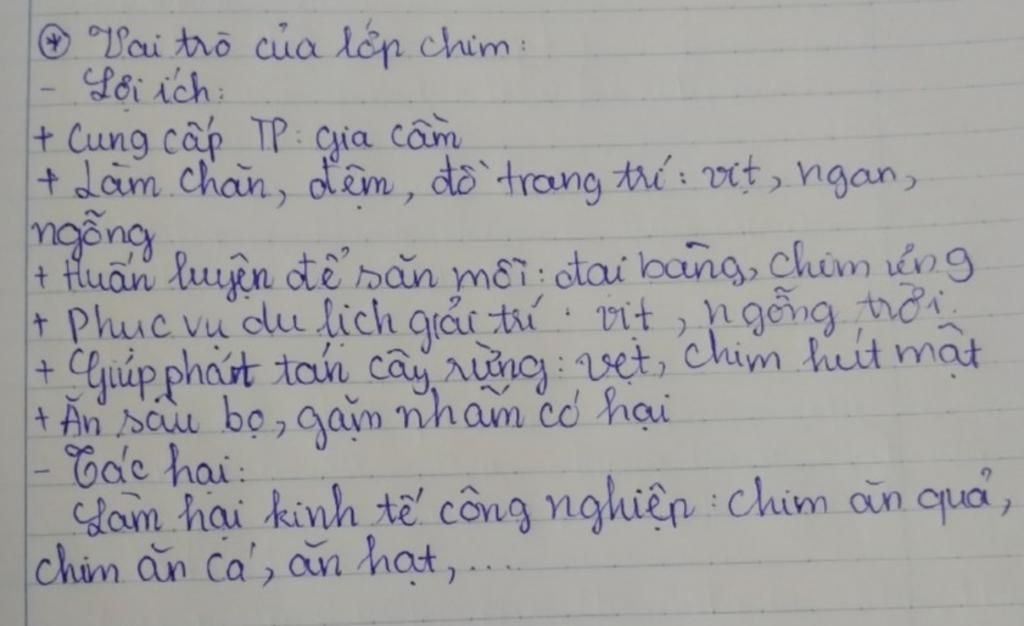 ⊛ Vai trò của lớp chim:
- Lợi ích:
+ Cung cấp TP: gia cầm
+ Làm chăn, đệm, đồ trang trí: vịt, ngan,
ngỗng
+ Huấn luyện để săn mồi: đại bàng, chim ưng
+ Phục vụ du lịch giải trí: vịt, ngỗng trời.
+ Giúp phát tán cây rừng: vẹt, chim hút mật
+ Ăn sâu bọ, gặm nhấm có hại
- Tác hại:
Làm hại kinh tế công nghiệp: chim ăn quả,
chim ăn cá, ăn hạt,...